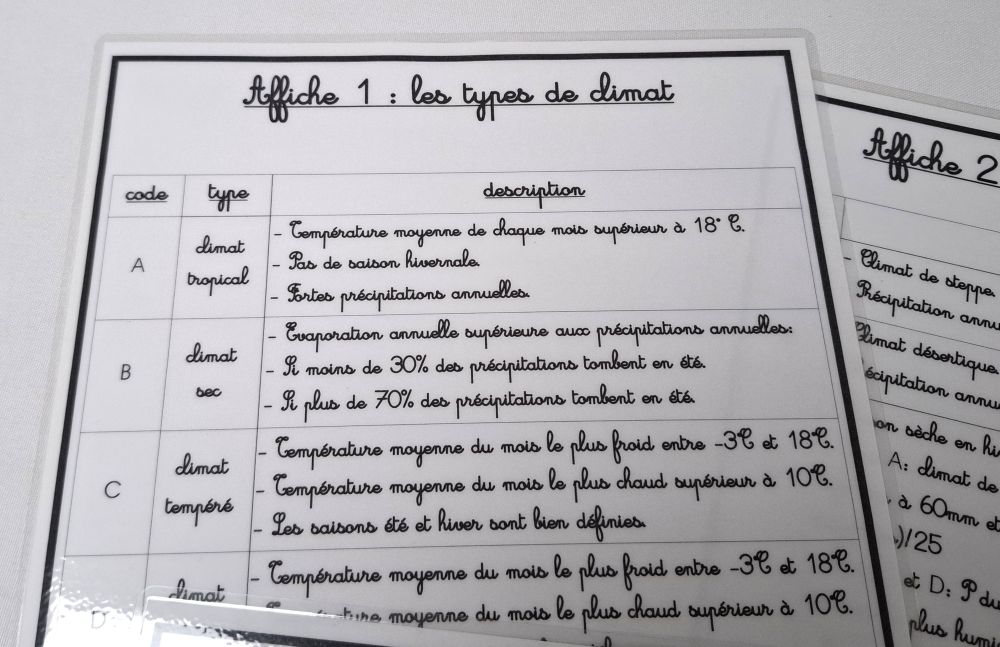 Affiche 1 : les types de climat
code type description
A
climat
tropical
- Température moyenne de chaque mois supérieur à 18° C.
- Pas de saison hivernale.
- Fortes précipitations annuelles.
B
climat
sec
- Evaporation annuelle supérieure aux précipitations annuelles:
- Si moins de 30% des précipitations tombent en été.
- Si plus de 70% des précipitations tombent en été.
C
climat
tempéré
- Température moyenne du mois le plus froid entre -3°C et 18°C.
- Température moyenne du mois le plus chaud supérieur à 10°C.
- Les saisons été et hiver sont bien définies.
D
climat
- Température moyenne du mois le plus froid entre -3°C et 18°C.
moyenne du mois le plus chaud supérieur à 10°C.
Affiche 2
- Climat de steppe.
Précipitation annu
Climat désertique
écipitation annu
on sèche en hi
A: climat de
à 60mm et
)/25
et D: P du
plus humi